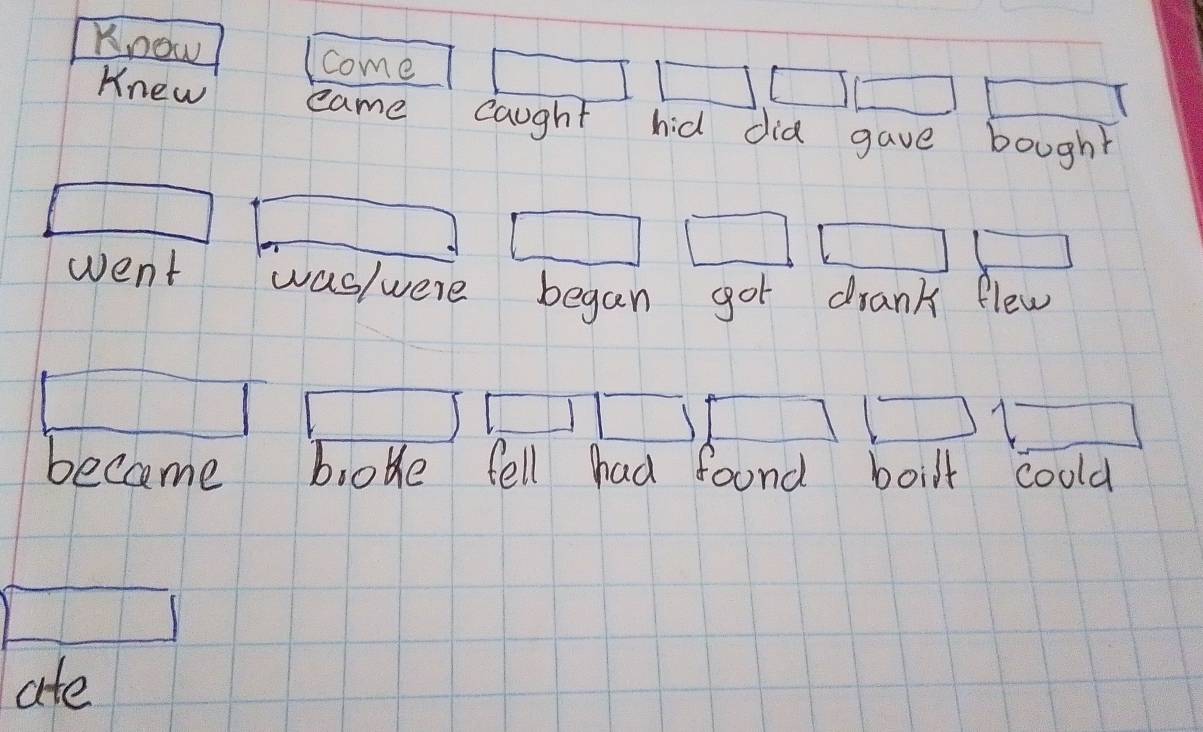 Know Come
Knew came caught hid did gave bought
went was/were began got drank flew
became broke fell had found boilt could
ate